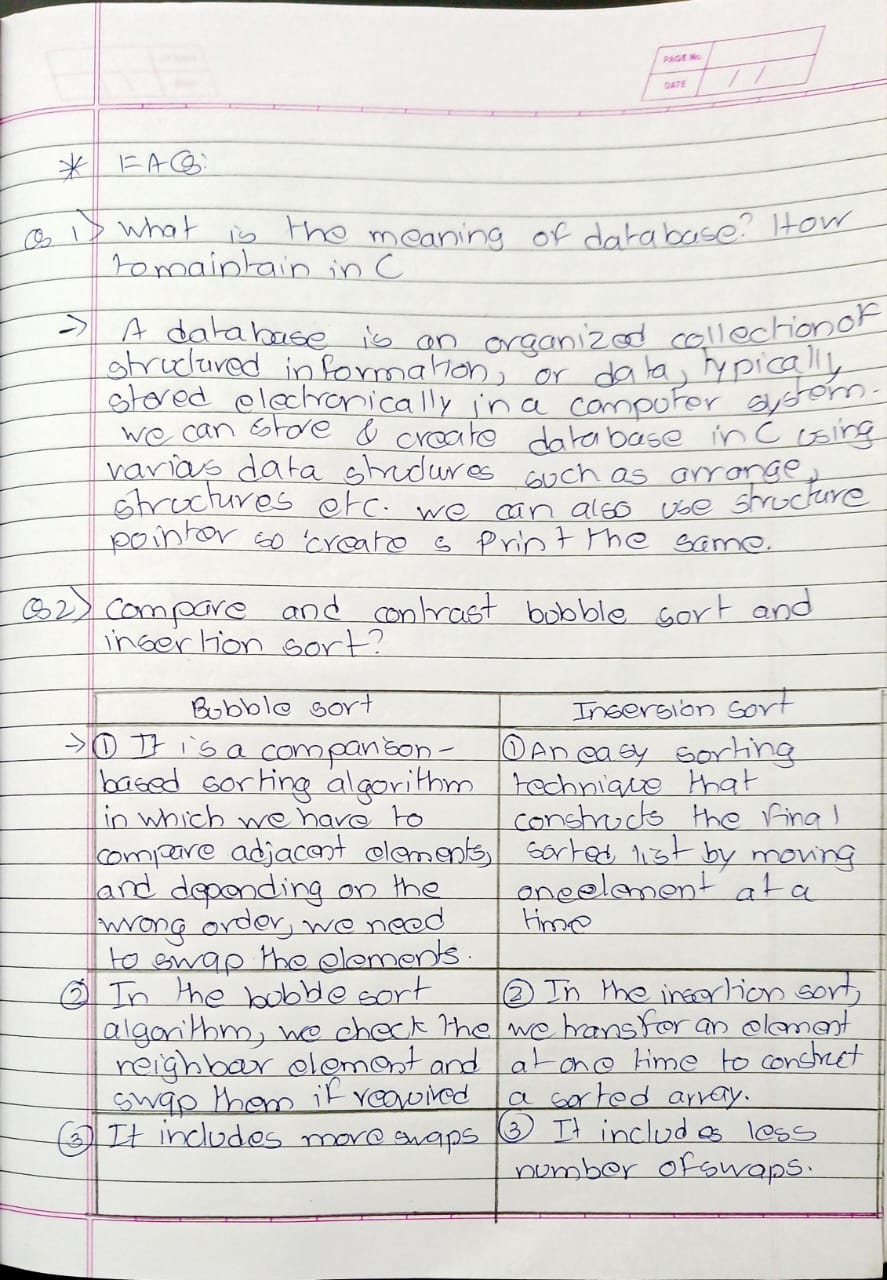 PAGE No.
DATE / /
* FAQ:
Q 1) What is the meaning of database? How
to maintain in C
→ A database is an organized collection of
structured information, or data, typically
stored electronically in a computer system.
we can store & create database in C using
varias data structures such as arrange,
structures etc. we can also use structure
pointer so create & Print the same.
Q2) compare and contrast bubble sort and
insertion sort?
Bubble sort | Insersion sort
→ ① It is a comparison-
based sorting algorithm
in which we have to
compare adjacent elements,
and depending on the
wrong order, we need
to swap the elements.
① An easy sorting
technique that
constructs the final
sorted list by moving
one element at a
time
② In the bubble sort
algorithm, we check the
neighbar element and
swap them if required
② In the insertion sort,
we transfer an element
at one time to construct
a sorted array.
③ It includes more swaps
③ It includes less
number of swaps.